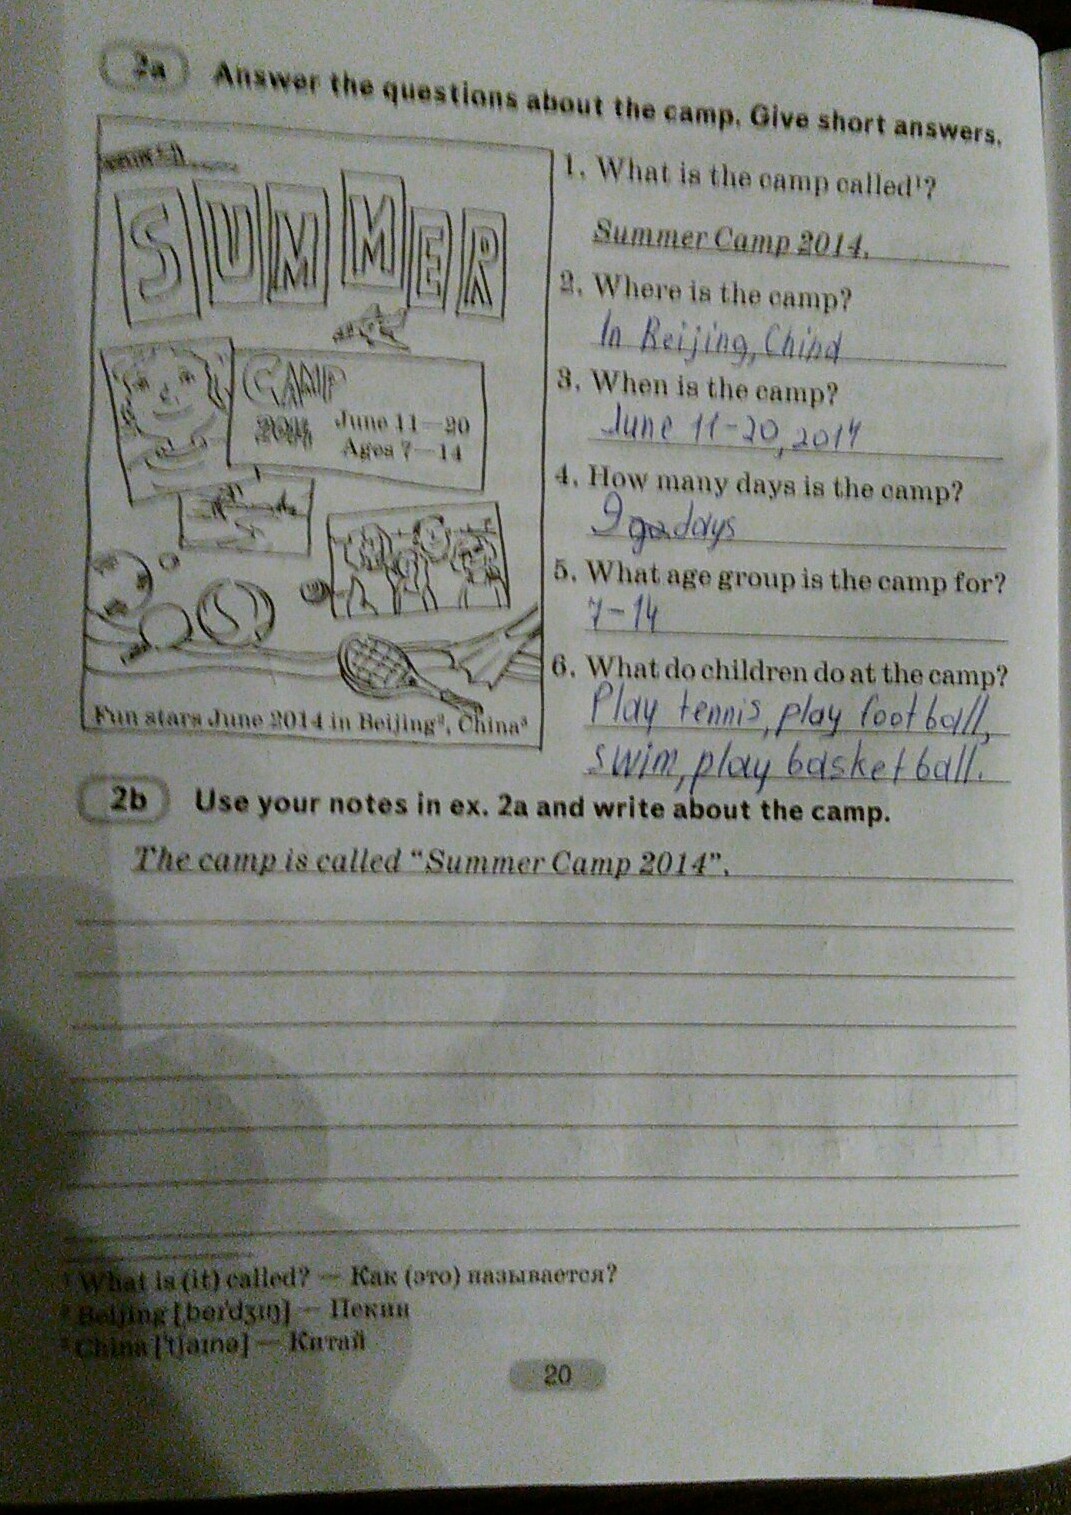 2a Answer the questions about the camp. Give short answers.
SUMMER
CAMP
2014 June 11—20
Ages 7—14
Fun stars June 2014 in Beijing², China³
1. What is the camp called¹?
Summer Camp 2014.
2. Where is the camp?
In Beijing, China
3. When is the camp?
June 11-20, 2014
4. How many days is the camp?
9 days
5. What age group is the camp for?
7-14
6. What do children do at the camp?
Play tennis, play football,
swim, play basketball.
2b Use your notes in ex. 2a and write about the camp.
The camp is called “Summer Camp 2014”.
¹ What is (it) called? — Как (это) называется?
² Beijing [ˌbeɪˈdʒɪŋ] — Пекин
³ China [ˈtʃaɪnə] — Китай
20